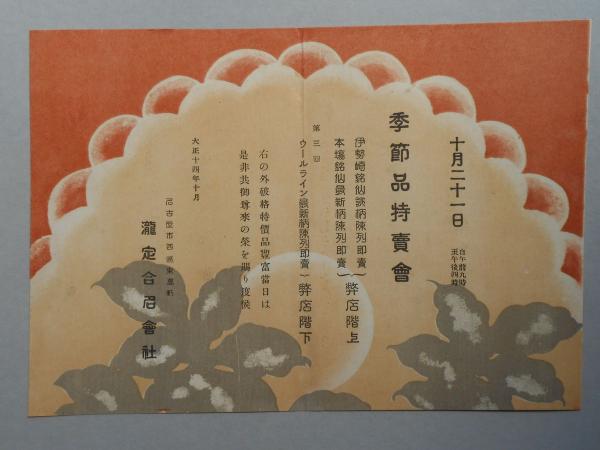 十月二十一日
自午前九時
至午後四時
季節品特賣會
伊勢崎銘仙新柄陳列即賣
本場銘仙最新柄陳列即賣
弊店階上
第三回
ウールライン最新柄陳列即賣
弊店階下
右の外破格特價品豐富當日は
是非共御尊來の榮を賜り度候
大正十四年十月
名古屋市西區東萬町
瀧定合名會社